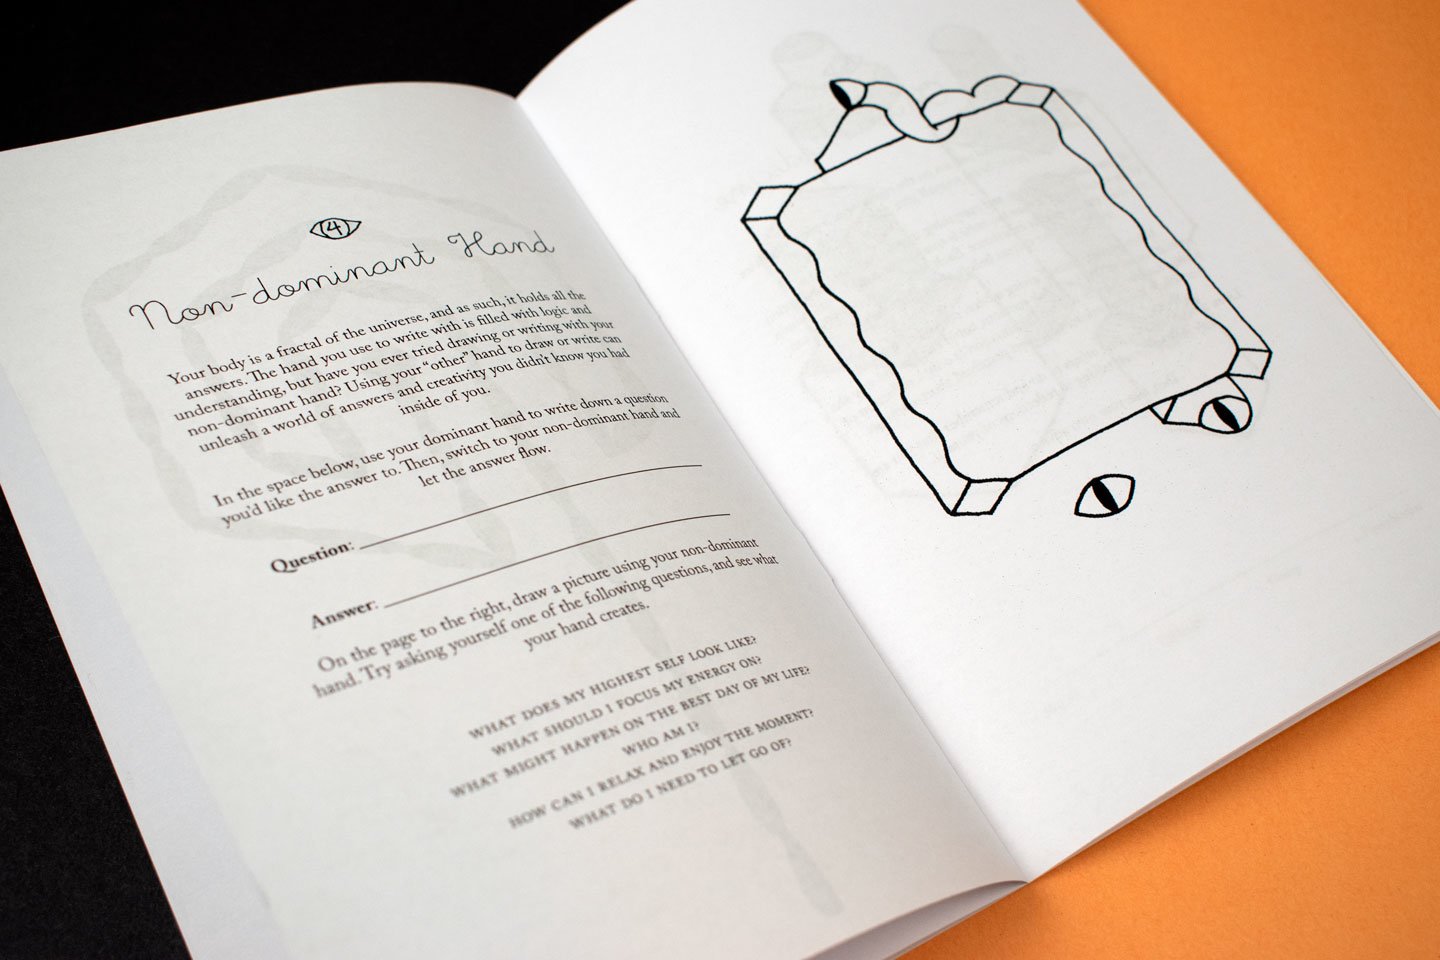 4
Non-dominant Hand
Your body is a fractal of the universe, and as such, it holds all the
answers. The hand you use to write with is filled with logic and
understanding, but have you ever tried drawing or writing with your
non-dominant hand? Using your “other” hand to draw or write can
unleash a world of answers and creativity you didn't know you had
inside of you.
In the space below, use your dominant hand to write down a question
you'd like the answer to. Then, switch to your non-dominant hand and
let the answer flow.
Question:
Answer:
On the page to the right, draw a picture using your non-dominant
hand. Try asking yourself one of the following questions, and see what
your hand creates.
WHAT DOES MY HIGHEST SELF LOOK LIKE?
WHAT SHOULD I FOCUS MY ENERGY ON?
WHAT MIGHT HAPPEN ON THE BEST DAY OF MY LIFE?
WHO AM I?
HOW CAN I RELAX AND ENJOY THE MOMENT?
WHAT DO I NEED TO LET GO OF?